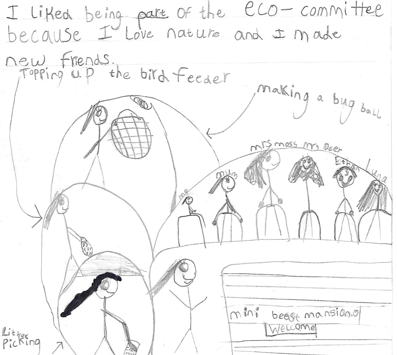 I liked being part of the eco-committee
because I Love nature and I made
new frends.
Topping up the bird feeder
making a bug ball
mrs moss mrs Deer
me
Litter
Picking
mini beast mansion
Welcome